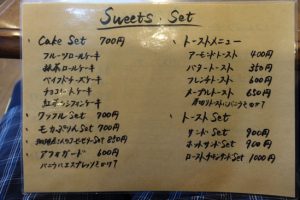 Sweets Set
・Cake Set 700円
フルーツロールケーキ
抹茶ロールケーキ
ベイクドチーズケーキ
チョコレートケーキ
紅茶シフォンケーキ
・ワッフル Set 700円
・モカぷりん Set 700円
Set 850円
・アフォガード 600円
バニラにエスプレッソとかけ
・トーストメニュー
アーモンドトースト 400円
バタートースト 350円
フレンチトースト 600円
メープルトースト 650円
厚切りトーストにバニラ
・トーストSet
サンドSet 900円
ホットサンドSet 900円
ローストチキンサンドSet 1000円